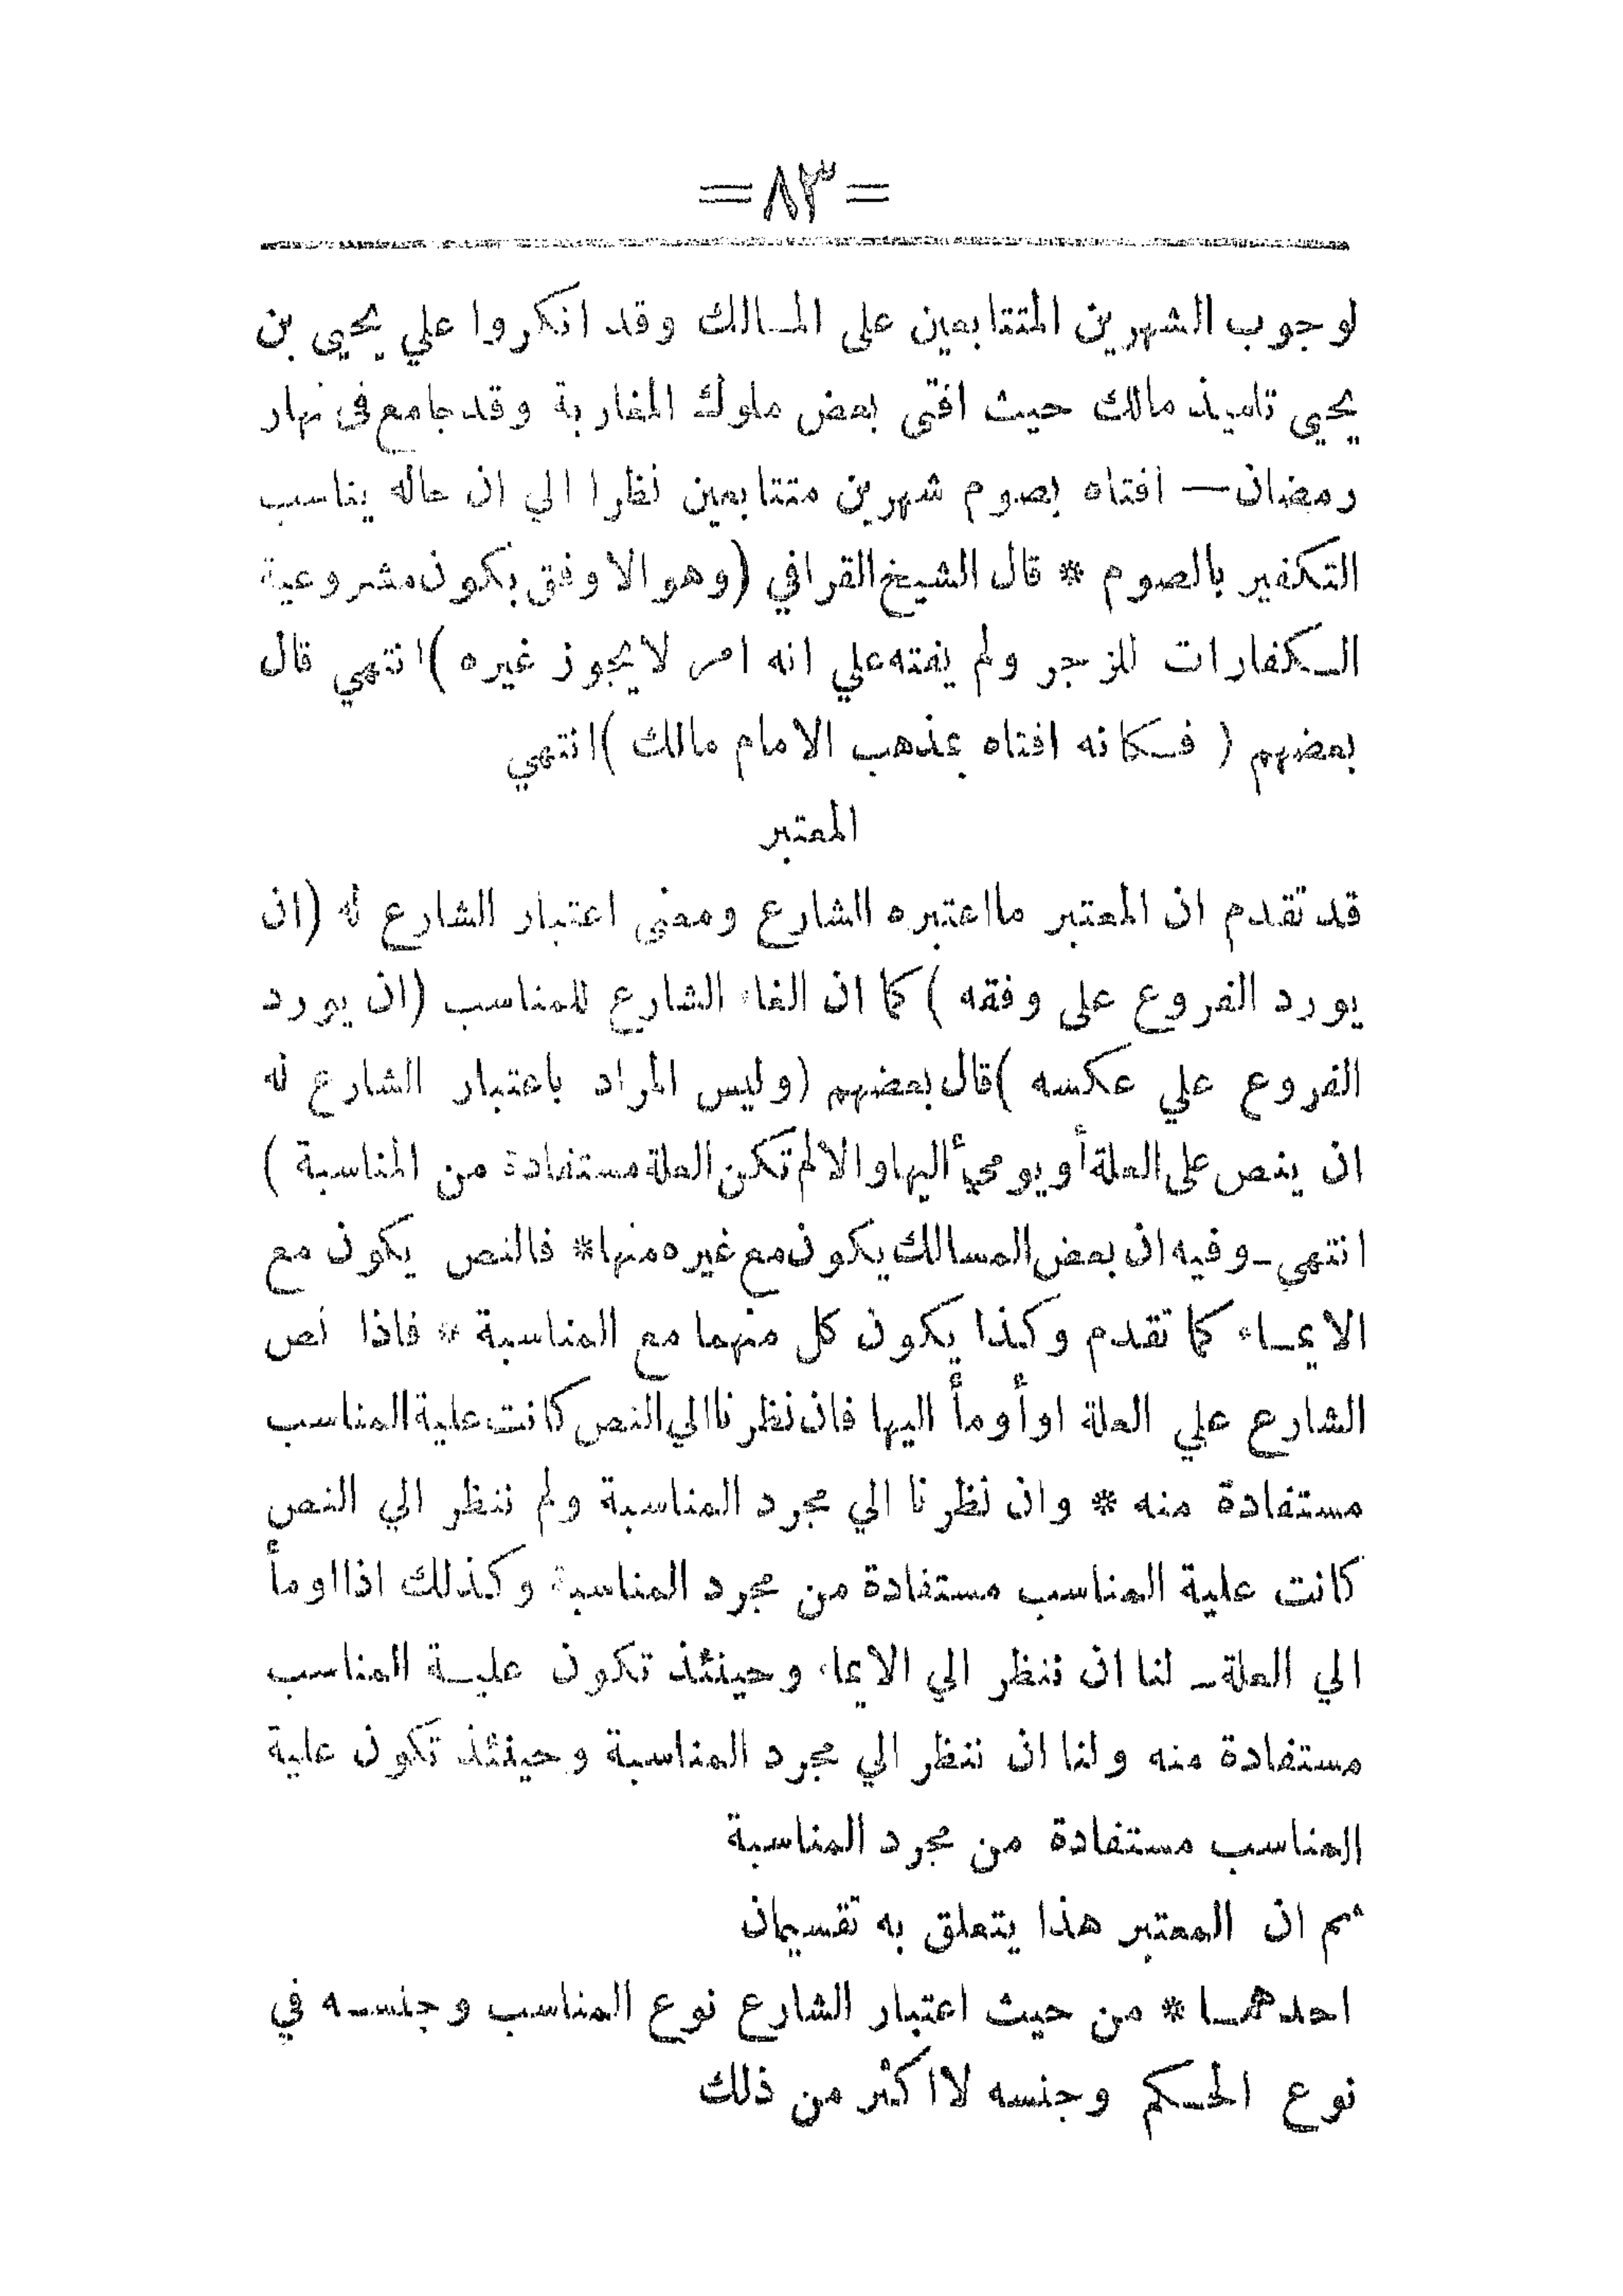 =٨٣=
لوجوب الشهرين المتتابعين على المالك وقد انكروا علي يحيى بن
يحيي تلميذ مالك حيث افتى بعض ملوك المغاربة وقد جامع فى نهار
رمضان— افتاه بصوم شهرين متتابعين نظرا الي ان حاله يناسب
التكفير بالصوم * قال الشيخ القرافي (وهو الاوفق بكون مشروعية
الكفارات للزجر ولم يفته علي انه امر لا يجوز غيره )انتهي قال
بعضهم ( فكانه افتاه بمذهب الامام مالك )انتهي
المعتبر
قد تقدم ان المعتبر مااعتبره الشارع ومعنى اعتبار الشارع له (ان
يورد الفروع على وفقه ) كما ان الغاء الشارع للمناسب (ان يورد
الفروع علي عكسه )قال بعضهم (وليس المراد باعتبار الشارع له
ان ينص على العلة أو يومئ أليها والا لم تكن العلة مستفادة من المناسبة )
انتهي_وفيه ان بعض المسالك يكون مع غيره منها* فالنص يكون مع
الايماء كما تقدم وكذا يكون كل منهما مع المناسبة * فاذا نص
الشارع علي العلة او أومأ اليها فان نظرنا الي النص كانت علية المناسب
مستفادة منه * وان نظرنا الي مجرد المناسبة ولم ننظر الي النص
كانت علية المناسب مستفادة من مجرد المناسبة وكذلك اذا اومأ
الي العلة_ لنا ان ننظر الي الايماء وحينئذ تكون علية المناسب
مستفادة منه ولنا ان ننظر الي مجرد المناسبة وحينئذ تكون علية
المناسب مستفادة من مجرد المناسبة
ثم ان المعتبر هذا يتعلق به تقسيمان
احدهما * من حيث اعتبار الشارع نوع المناسب وجنسه في
نوع الحكم وجنسه لا اكثر من ذلك